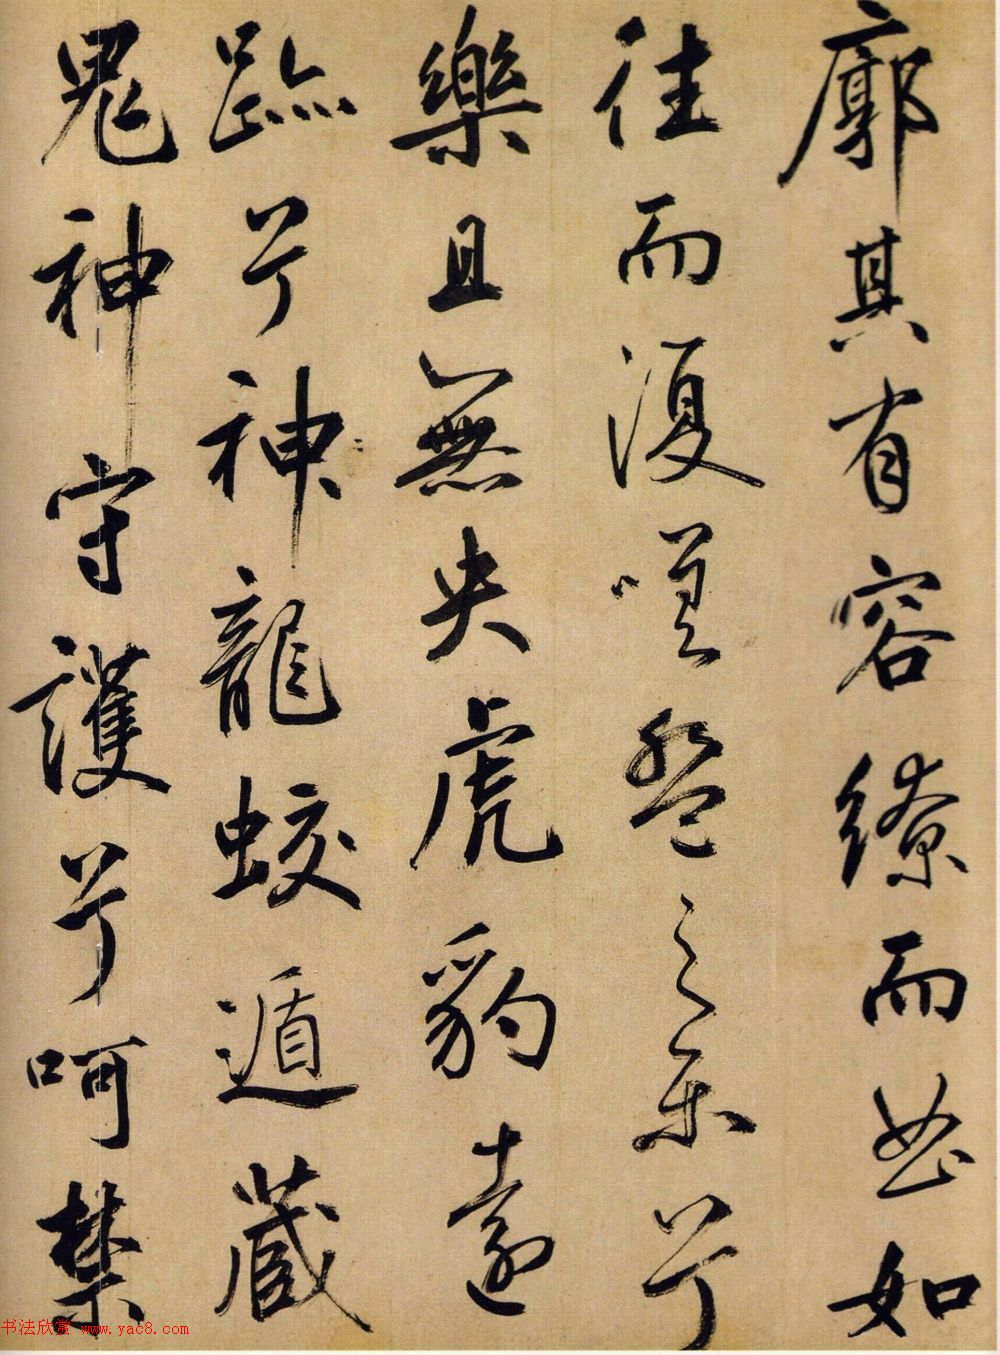 廓其有容繚而曲如
往而復嗟盤之樂兮
樂且無央虎豹遠
跡兮神龍蛟遁藏
鬼神守護兮呵禁
书法欣赏 www.yac8.com